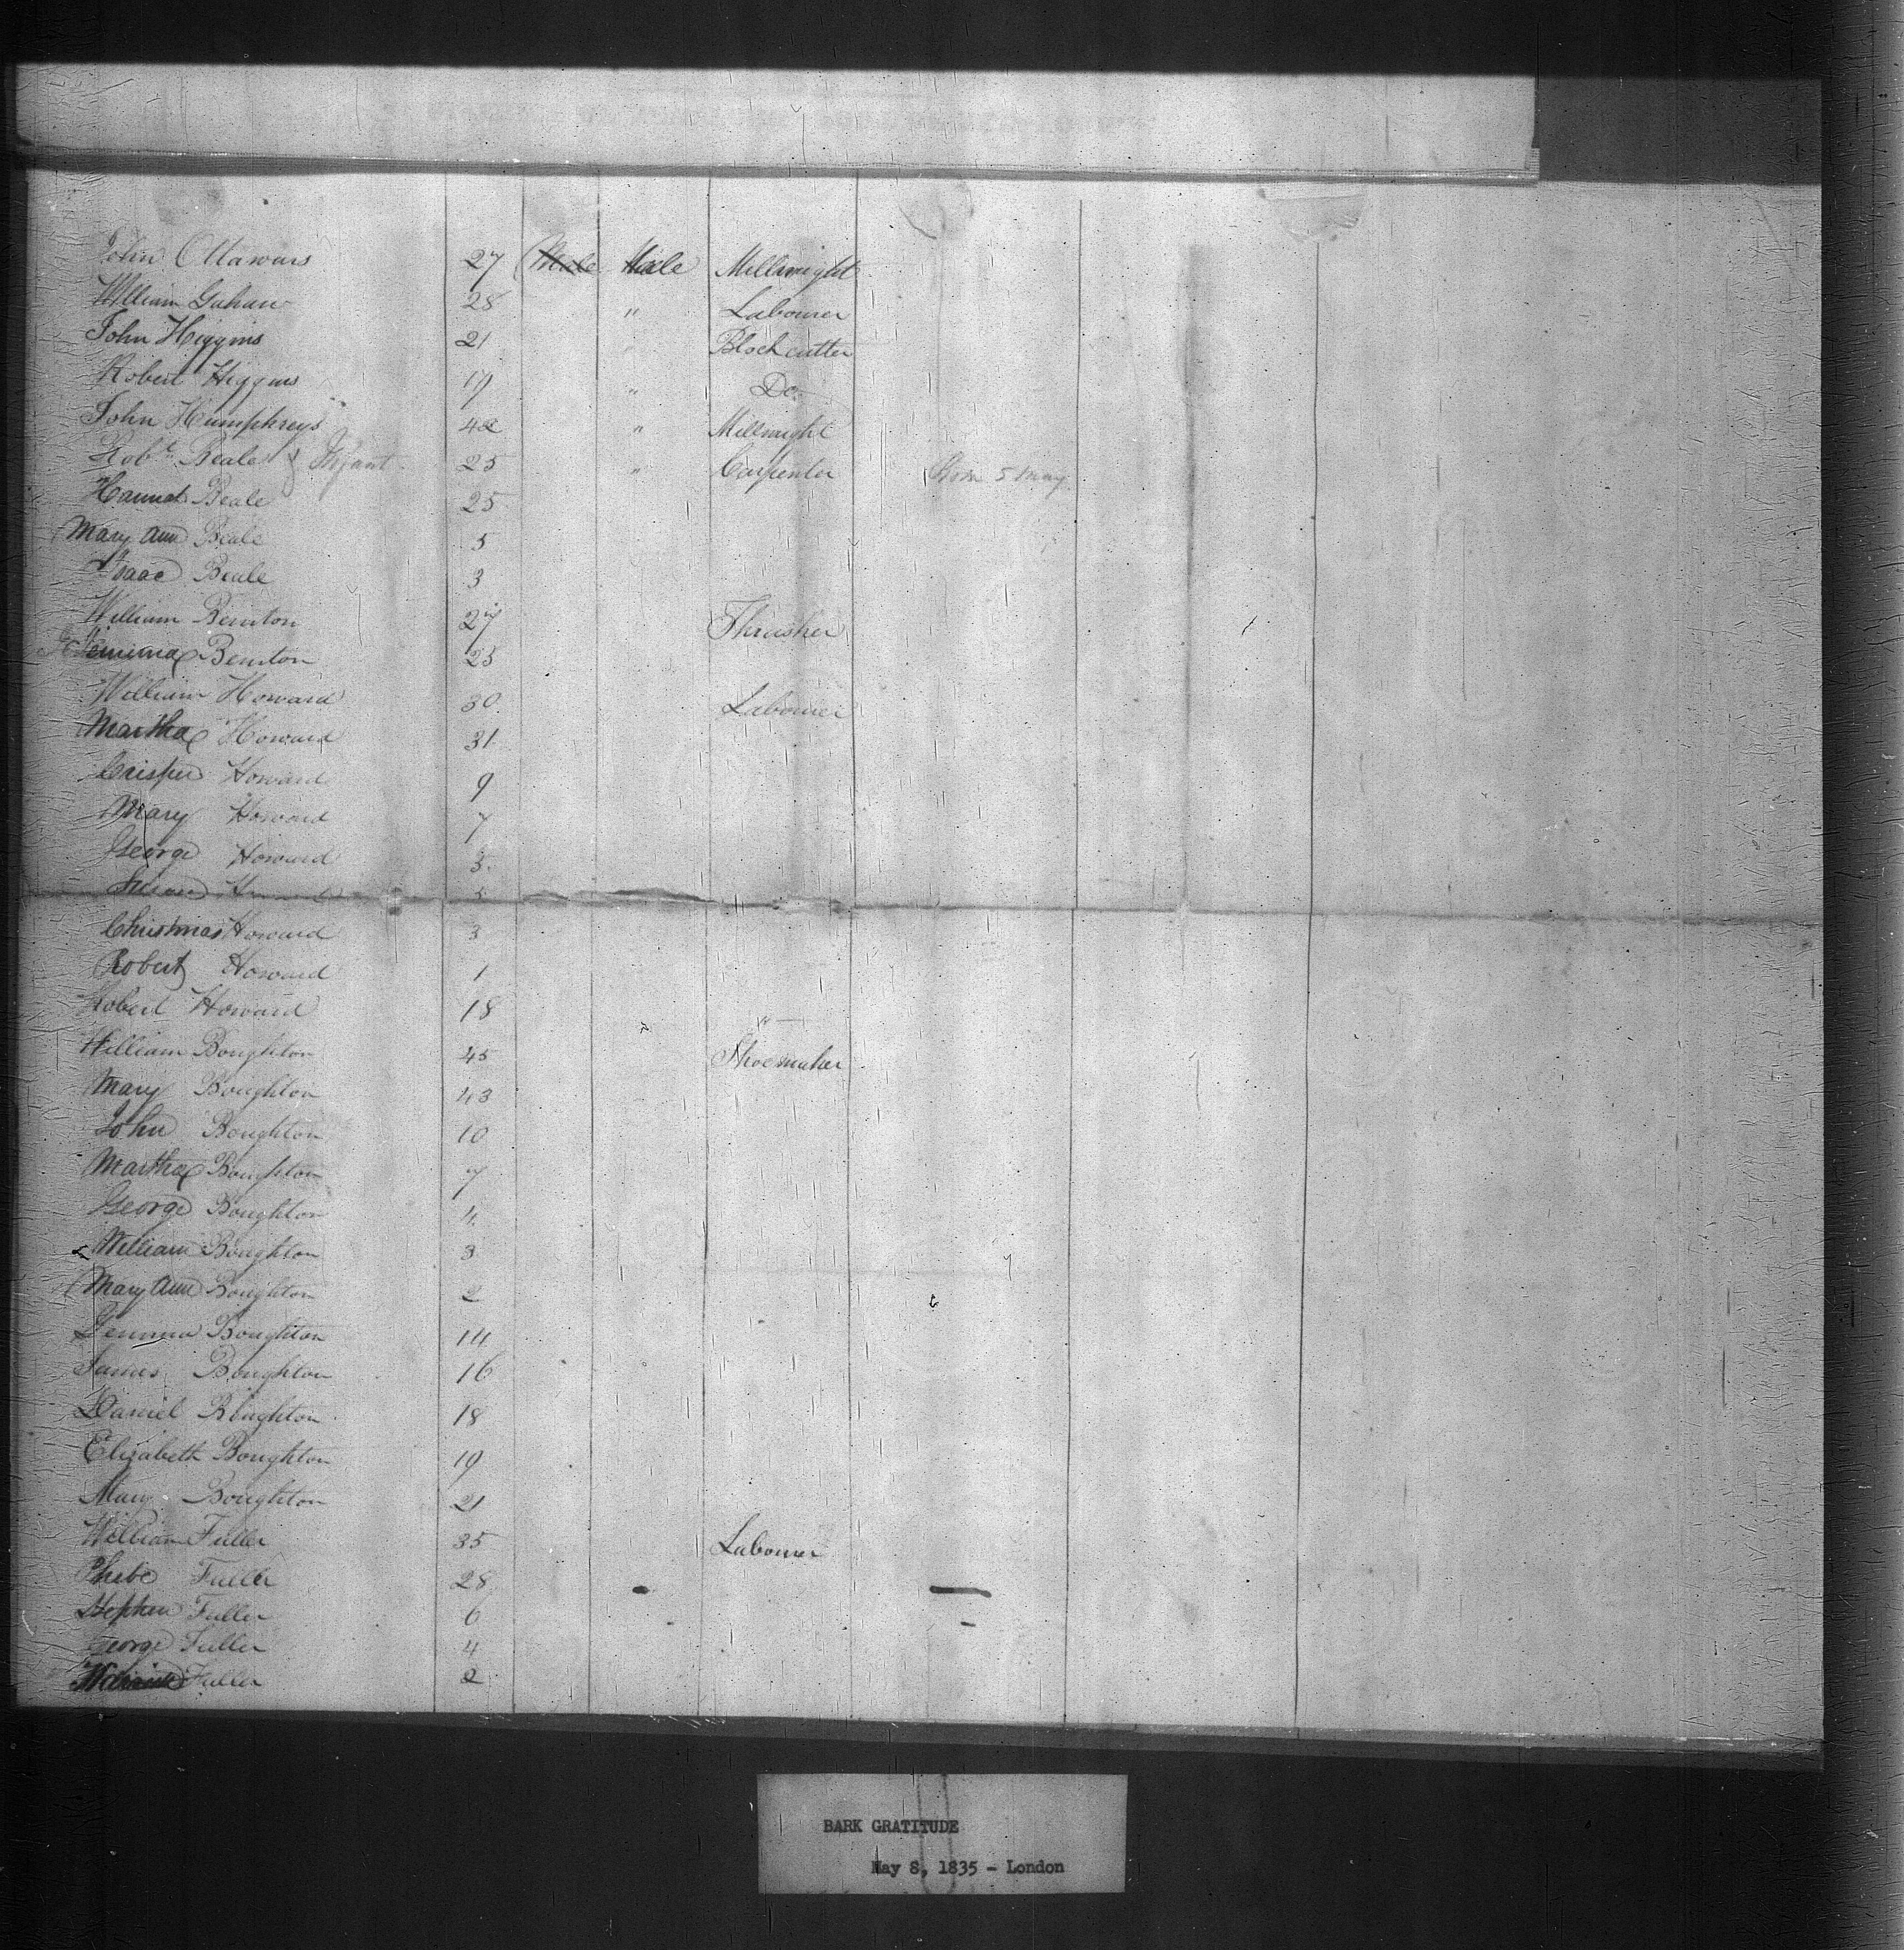 John 27 Male Male Millwright
William Gahan 28 " Labourer
John Higgins 21 " Block cutter
Robert Higgins 19 " Do.
John Humphreys 42 " Millwright
Robt. Beale & Infant 25 " Carpenter Born 5 May
Hannah Beale 25
Mary Ann Beale 5
Isaac Beale 3
William Benton 27 Thrasher
Jemima Benton 23
William Howard 30 Labourer
Martha Howard 31
Howard 9
Mary Howard 7
George Howard 3
Christmas Howard 3
Robert Howard 1
Robert Howard 18 "
William Boughton 45 Shoemaker
Mary Boughton 43
John Boughton 10
Martha Boughton 7
George Boughton 4
William Boughton 3
Mary Ann Boughton 2
Boughton 14
James Boughton 16
Daniel Boughton 18
Elizabeth Boughton 19
Mary Boughton 21
William Fuller 35 Labourer
Phebe Fuller 28
Stephen Fuller 6
George Fuller 4
Fuller 2
BARK GRATITUDE
May 8, 1835 - London